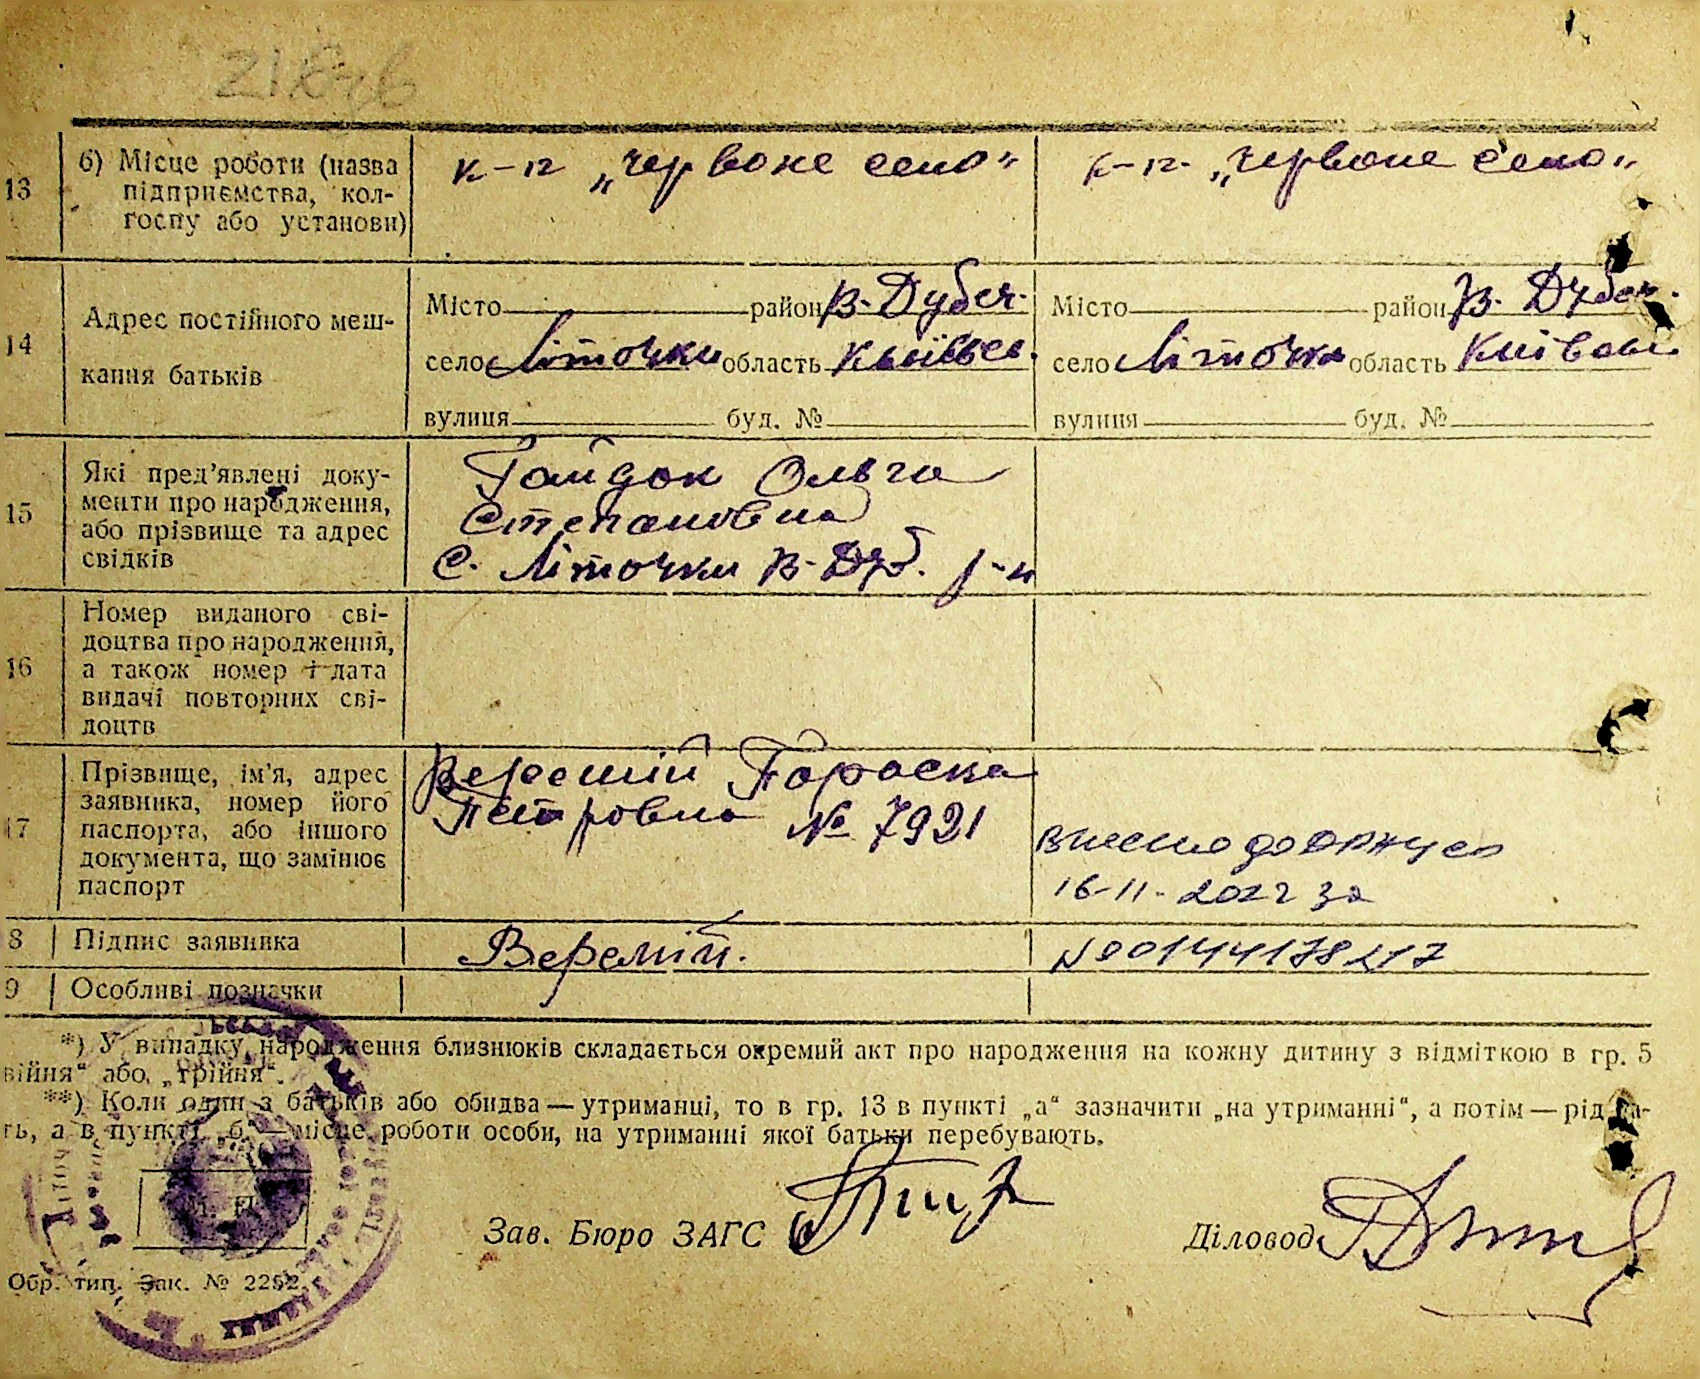 13 б) Місце роботи (назва підприємства, колгоспу або установи) к-п „червоне село" к-п- „червоне село"
14 Адрес постійного мешкання батьків
Місто район В-Дубеч. Місто район В- Дубеч.
село Літочки область Київськ. село Літочки область Київськ
вулиця буд. № вулиця буд. №
15 Які пред'явлені документи про народження, або прізвище та адрес свідків
Гайдок Ольга
Степановна
с. Літочки В-Дуб. р-н
16 Номер виданого свідоцтва про народження, а також номер і дата видачі повторних свідоцтв
17 Прізвище, ім'я, адрес заявника, номер його паспорта, або іншого документа, що замінює паспорт
Веремій Параска
Петровна № 7921
внесено до ДРАЦСо
16-11-2022 за
8 Підпис заявника Веремій. №00144178217
9 Особливі позначки
*) У випадку народження близнюків складається окремий акт про народження на кожну дитину з відміткою в гр. 5
війня" або „трійня".
**) Коли один з батьків або обидва — утриманці, то в гр. 13 в пункті „а" зазначити „на утриманні", а потім — рід за-
ть, а в пункті „б" — місце роботи особи, на утриманні якої батьки перебувають.
М. П.
Зав. Бюро ЗАГС Діловод
Обр. тип. Зак. № 2252.